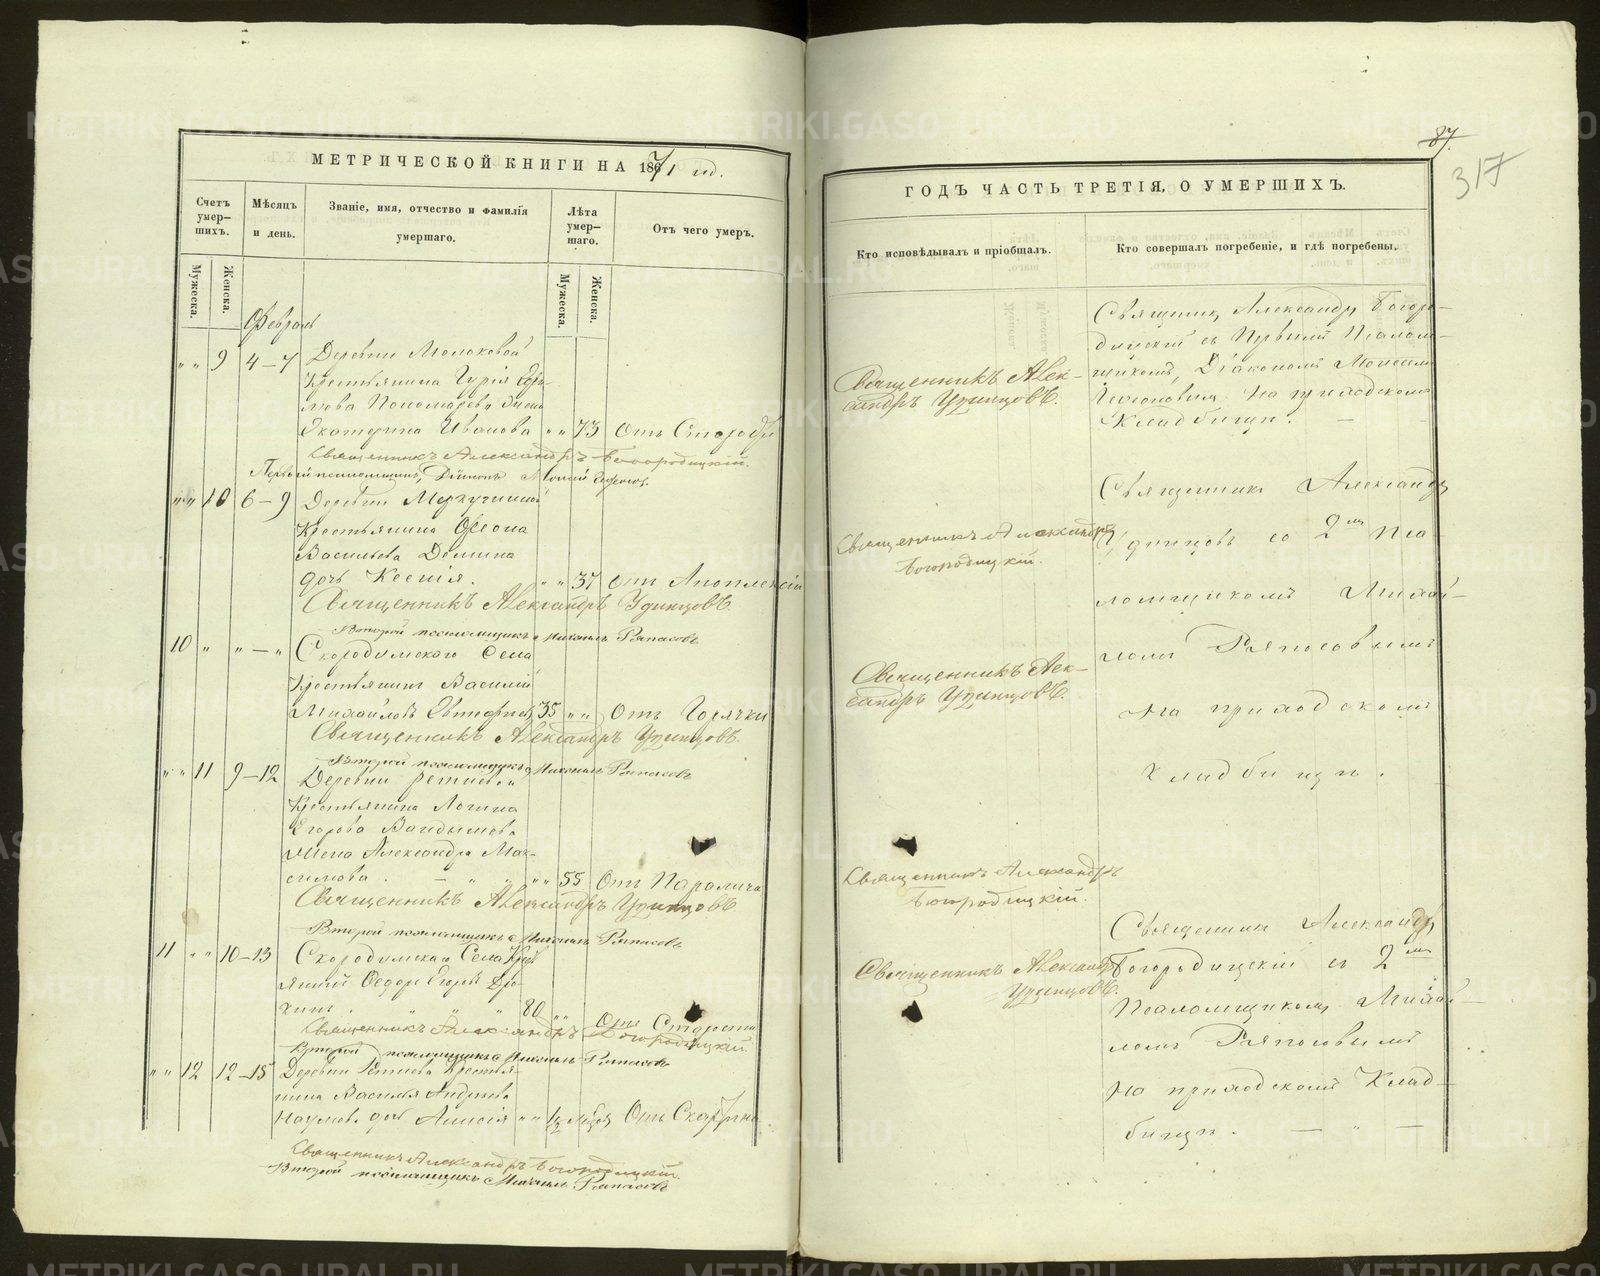 METRIKI.GASO-URAL.RU
87.
317
МЕТРИЧЕСКОЙ КНИГИ НА 1871 год.
Счетъ умер-шихъ.
Мѣсяцъ и день.
Званіе, имя, отчество и фамилія умершаго.
Лѣта умер-шаго.
Отъ чего умеръ.
Мужеска.
Женска.
Мужеска.
Женска.
Февраль
" " 9 4-7 Деревни Молоковой
Крестьянина Гурія
Пономарева жена
Екатерина Иванова " " 73 Отъ Старости
Священникъ Александръ Богородицкій.
Первый псаломщикъ, Діаконъ Моисей
" " 10 6-9 Деревни
Крестьянина Ѳеона
Васильева Демина
дочь Ксенія. " " 37 Отъ Апоплексіи
Священникъ Александръ Удинцовъ
Второй псаломщикъ Михаилъ Ряпасовъ
10 " " - " Скородумскаго Села
Крестьянинъ Василій
Михайловъ 35 " " Отъ Горячки
Священникъ Александръ Удинцовъ.
Второй псаломщикъ Михаилъ Ряпасовъ
" " 11 9-12 Деревни Ретневой
Крестьянина Логина
Егорова
жена Александра Мак-
симова. - " " " " 55 Отъ Паралича
Священникъ Александръ Удинцовъ
Второй псаломщикъ Михаилъ Ряпасовъ
11 " " 10-13 Скородумскаго Села Крест
янинъ Ѳедоръ Егоровъ
" " " 80 " " Отъ Старости
Священникъ Александръ Богородицкій
Второй псаломщикъ Михаилъ Ряпасовъ
" " 12 12-15 Деревни Ретнева Крестья-
нина Василья Андреева
Наумова дочь Анисія " " Отъ
Священникъ Александръ Богородицкій.
Второй псаломщикъ Михаилъ Ряпасовъ
ГОДЪ ЧАСТЬ ТРЕТІЯ, О УМЕРШИХЪ.
Кто исповѣдывалъ и пріобщалъ.
Кто совершалъ погребеніе, и гдѣ погребены.
Священникъ Алек-
сандръ Удинцовъ.
Священникъ Александръ
Богородицкій.
Священникъ Алек-
сандръ Удинцовъ.
Священникъ Александръ
Богородицкій.
Священникъ Александръ
Удинцовъ.
Священникъ Александръ Богоро-
дицкій съ Первымъ Псалом-
щикомъ, Діакономъ Моисеемъ
на приходскомъ
Кладбищѣ. -
Священникъ Александръ
Удинцовъ со 2мъ Пса
ломщикомъ Михаи-
ломъ Ряпосовымъ
На приходскомъ
Кладбищѣ.
Священникъ Александръ
Богородицкій съ 2мъ
Псаломщикомъ Михаи-
ломъ Ряпосовымъ
на приходскомъ Клад-
бищѣ. - " -